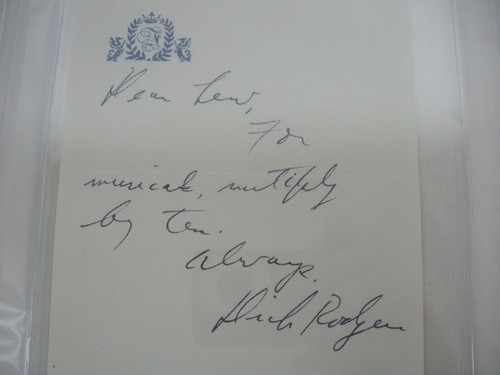 Dear Lew,
For
musicals, mutiply
by ten.
Always,
Dick Rodgers